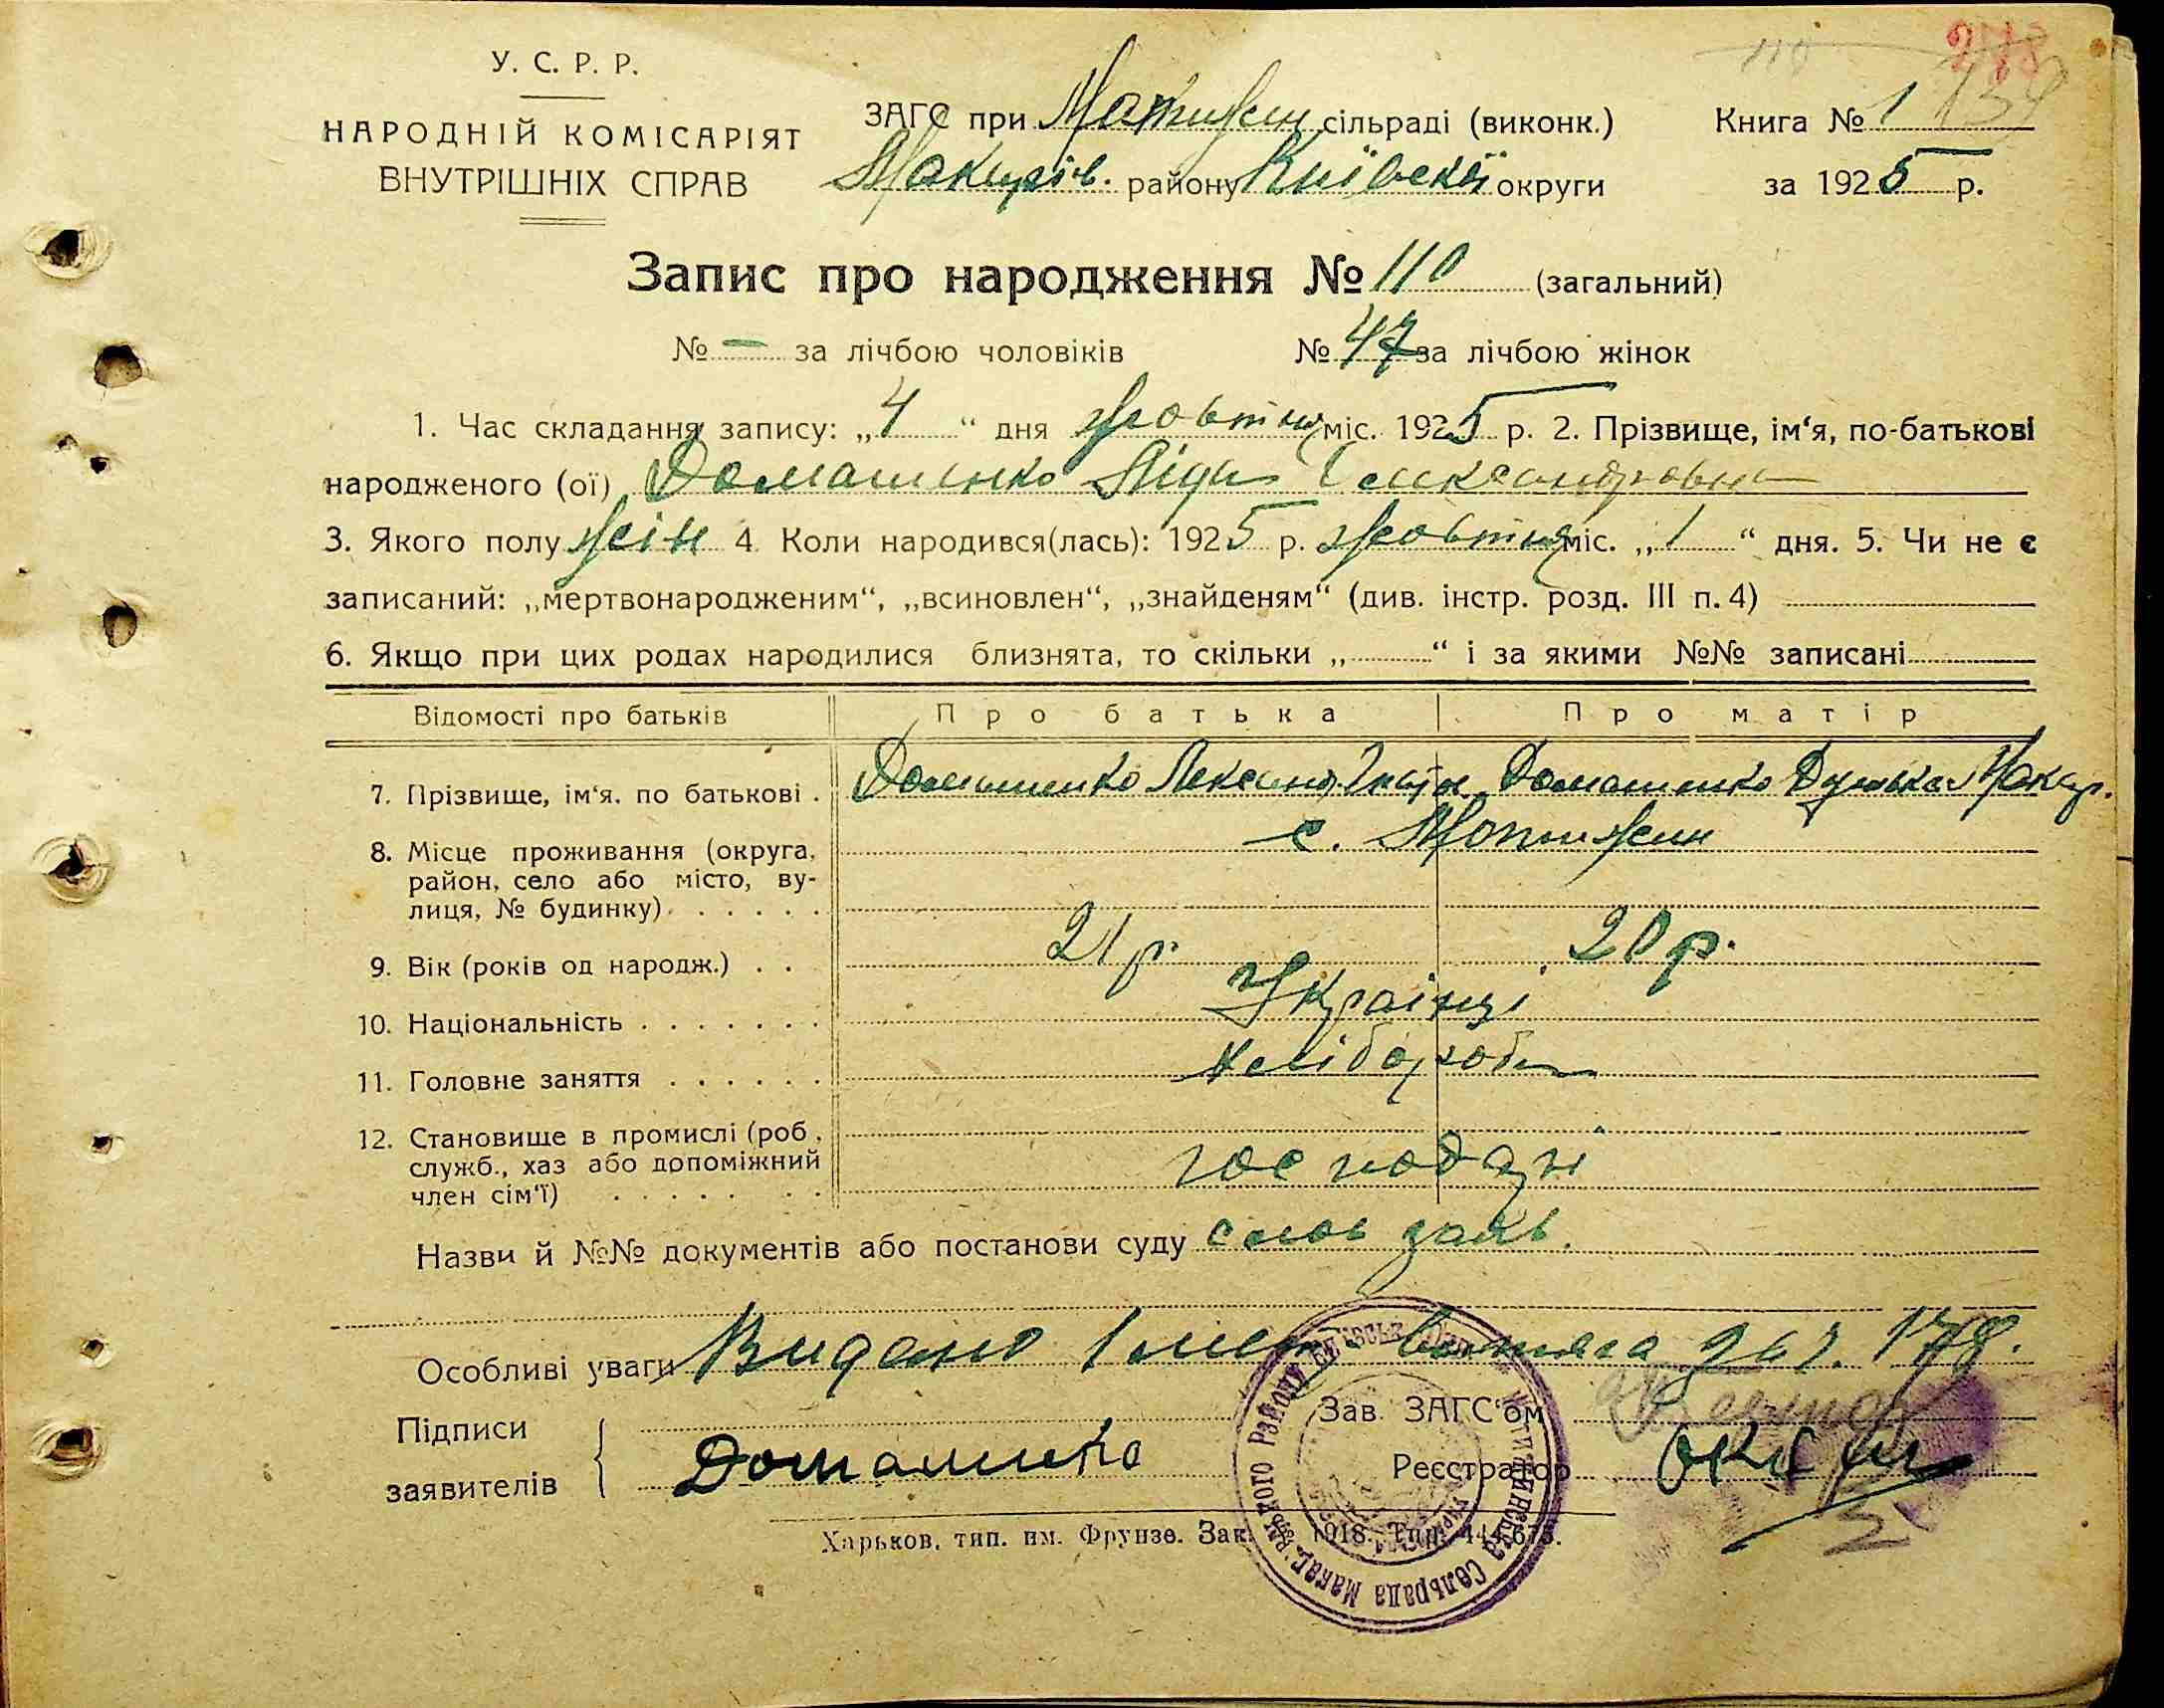 У. С. Р. Р.
НАРОДНІЙ КОМІСАРІЯТ
ВНУТРІШНІХ СПРАВ
ЗАГС при Мотижин сільраді (виконк.)
Макарів. району Київської округи
Книга № 1
за 1925 р.
110
278
134
Запис про народження № 110 (загальний)
№ — за лічбою чоловіків № 47 за лічбою жінок
1. Час складання запису: „4“ дня жовтня міс. 1925 р. 2. Прізвище, ім‘я, по-батькові
народженого (ої) Домашенко Лідія Олександровна
3. Якого полу жін 4. Коли народився(лась): 1925 р. жовтня міс. „1“ дня. 5. Чи не є
записаний: „мертвонародженим“, „всиновлен“, „знайденям“ (див. інстр. розд. III п. 4)
6. Якщо при цих родах народилися близнята, то скільки „ “ і за якими №№ записані
Відомості про батьків Про батька Про матір
7. Прізвище, ім‘я, по батькові . Домашенко Лександ. Домашенко Думька Макар.
8. Місце проживання (округа, район, село або місто, ву-
с. Мотижин
лиця, № будинку)
9. Вік (років од народж.) . . 21 р. 20 р.
10. Національність . . . . . . . Українці
11. Головне заняття . . . . . . хлібороби
12. Становище в промислі (роб.,
служб., хаз або допоміжний господарі
член сім‘ї)
Назви й №№ документів або постанови суду слов заяв.
Особливі уваги Видано 1 витяга 178.
Підписи
заявителів Домашенко
Зав. ЗАГС‘ом
Реєстратор
Харьков, тип. им. Фрунзе. Зак. 1918.
Сельрада Макар